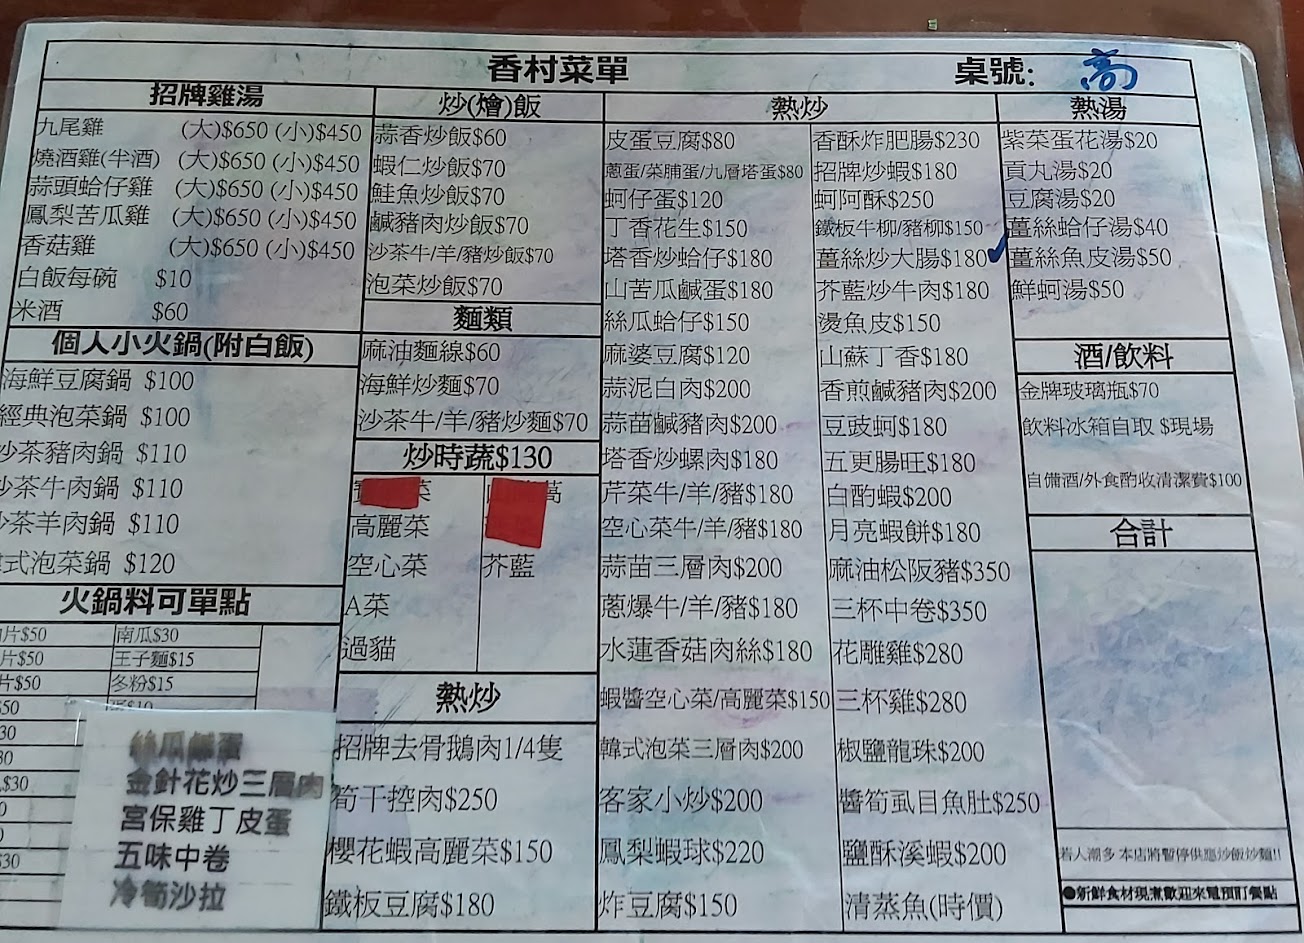 香村菜單
桌號: 高
招牌雞湯
九尾雞 (大)$650 (小)$450
燒酒雞(半酒) (大)$650 (小)$450
蒜頭蛤仔雞 (大)$650 (小)$450
鳳梨苦瓜雞 (大)$650 (小)$450
香菇雞 (大)$650 (小)$450
白飯每碗 $10
米酒 $60
個人小火鍋(附白飯)
海鮮豆腐鍋 $100
經典泡菜鍋 $100
沙茶豬肉鍋 $110
沙茶牛肉鍋 $110
茶羊肉鍋 $110
式泡菜鍋 $120
火鍋料可單點
片$50
南瓜$30
片$50
王子麵$15
片$50
冬粉$15
$50
$30
$30
金針花炒三層肉
宮保雞丁皮蛋
五味中卷
冷筍沙拉
炒(燴)飯
蒜香炒飯$60
蝦仁炒飯$70
鮭魚炒飯$70
鹹豬肉炒飯$70
沙茶牛/羊/豬炒飯$70
泡菜炒飯$70
麵類
麻油麵線$60
海鮮炒麵$70
沙茶牛/羊/豬炒麵$70
炒時蔬$130
菜
高麗菜
空心菜
A菜
過貓
萵
芥藍
熱炒
招牌去骨鵝肉1/4隻
筍干控肉$250
櫻花蝦高麗菜$150
鐵板豆腐$180
熱炒
皮蛋豆腐$80
蔥蛋/菜脯蛋/九層塔蛋$80
蚵仔蛋$120
丁香花生$150
塔香炒蛤仔$180
山苦瓜鹹蛋$180
絲瓜蛤仔$150
麻婆豆腐$120
蒜泥白肉$200
蒜苗鹹豬肉$200
塔香炒螺肉$180
芹菜牛/羊/豬$180
空心菜牛/羊/豬$180
蒜苗三層肉$200
蔥爆牛/羊/豬$180
水蓮香菇肉絲$180
蝦醬空心菜/高麗菜$150
韓式泡菜三層肉$200
客家小炒$200
鳳梨蝦球$220
炸豆腐$150
香酥炸肥腸$230
招牌炒蝦$180
蚵阿酥$250
鐵板牛柳/豬柳$150
薑絲炒大腸$180
芥藍炒牛肉$180
燙魚皮$150
山蘇丁香$180
香煎鹹豬肉$200
豆豉蚵$180
五更腸旺$180
白酌蝦$200
月亮蝦餅$180
麻油松阪豬$350
三杯中卷$350
花雕雞$280
三杯雞$280
椒鹽龍珠$200
醬筍虱目魚肚$250
鹽酥溪蝦$200
清蒸魚(時價)
熱湯
紫菜蛋花湯$20
貢丸湯$20
豆腐湯$20
薑絲蛤仔湯$40
薑絲魚皮湯$50
鮮蚵湯$50
酒/飲料
金牌玻璃瓶$70
飲料冰箱自取 $現場
自備酒/外食酌收清潔費$100
合計
若人潮多 本店將暫停供應炒飯炒麵!!
●新鮮食材現煮歡迎來電預訂餐點